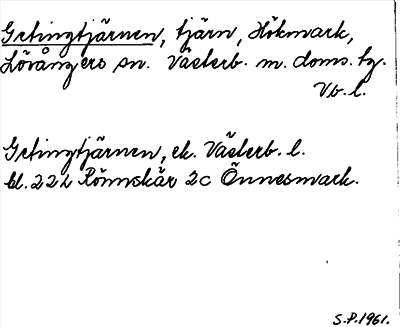 Getingtjärnen, tjärn, Hökmark,
Lövångers sn. Västerb. m. doms. tg.
Vb. l.
Getingtjärnen, ek. Västerb. l.
bl. 22 L Rönnskär 2c Önnesmark.
S.P. 1961.